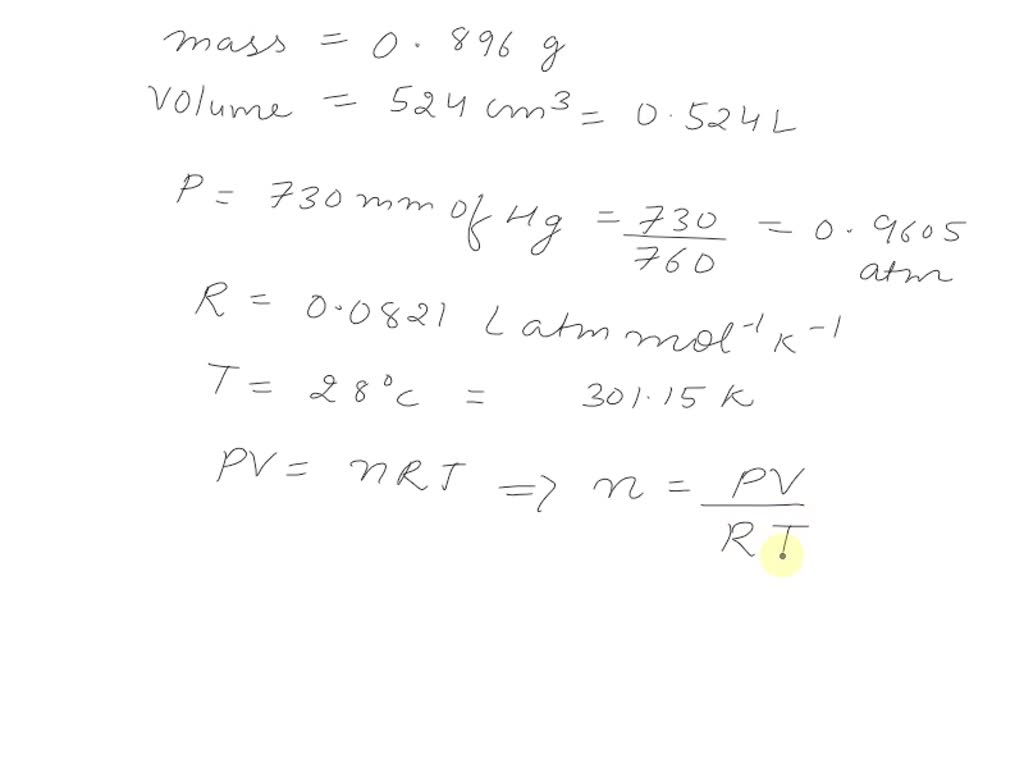 mass = 0.896 g
volume = 524 cm³ = 0.524 L
P = 730 mm of Hg = 730/760 = 0.9605 atm
R = 0.0821 L atm mol⁻¹ K⁻¹
T = 28°C = 301.15 K
PV = nRT => n = PV/RT